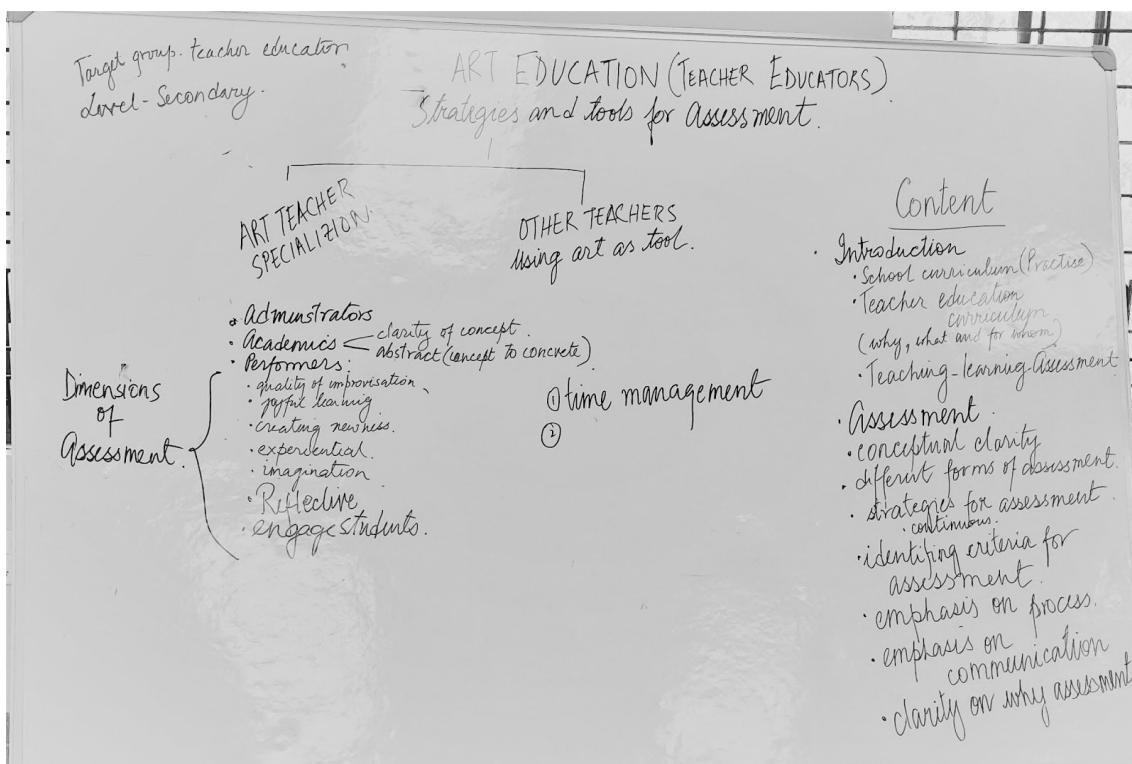 Target group. teacher education
Level - Secondary.
ART EDUCATION (TEACHER EDUCATORS)
Strategies and tools for Assessment.
ART TEACHER
SPECIALIZION.
OTHER TEACHERS
Using art as tool.
Dimensions
of
Assessment.
• Adminstrators
• Academics < clarity of concept.
abstract (concept to concrete)
• Performers:
• quality of improvisation
• joyful learning
• creating newness.
• experiential.
• imagination
• Reflective
• engage students.
① time management
②
Content
• Introduction
• School curriculum (Practise)
• Teacher education
curriculum
(why, what and for whom)
• Teaching-learning-Assessment
• Assessment.
• conceptual clarity
• different forms of assessment.
• strategies for assessment
• continuous.
• identifing criteria for
assessment.
• emphasis on process.
• emphasis on
communication
• clarity on why assessment